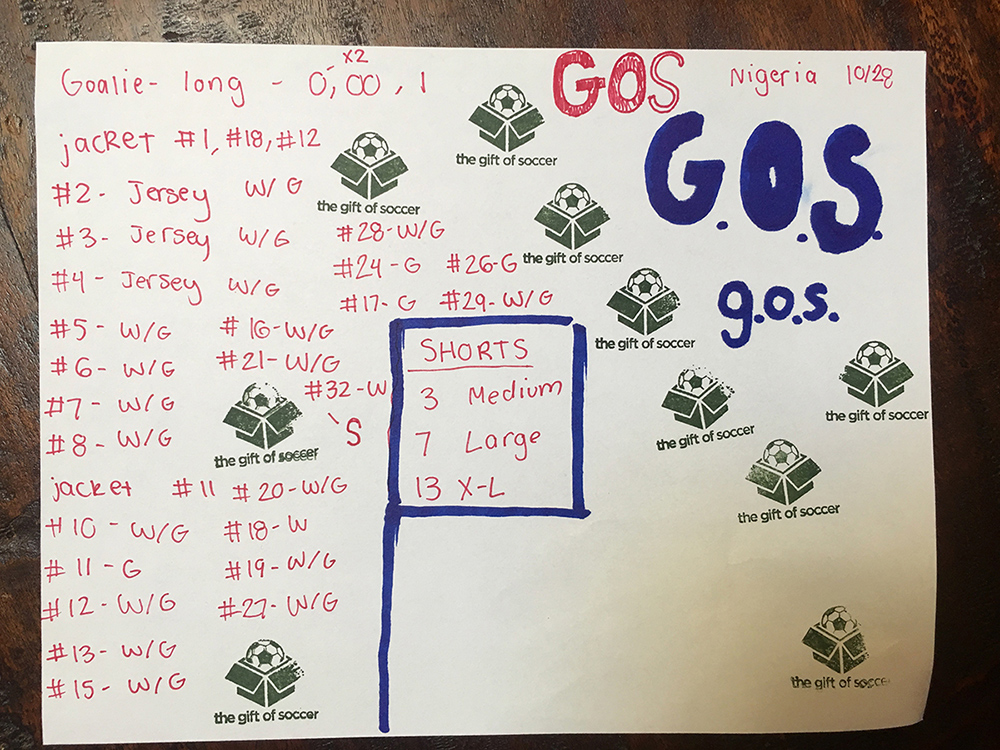 Goalie- long - 0, 00, 1
x2
GOS
Nigeria 10/28
G.O.S.
g.o.s.
jacket #1, #18, #12
#2 - Jersey W/G
#3 - Jersey W/G
#4 - Jersey W/G
#28-W/G
#24-G #26-G
#17-G #29-W/G
#5 - W/G #16-W/G
#6 - W/G #21-W/G
#7 - W/G #32-W
#8 - W/G
'S
jacket #11 #20-W/G
#10 - W/G #18-W
#11 - G #19-W/G
#12 - W/G #27-W/G
#13 - W/G
#15 - W/G
SHORTS
3 Medium
7 Large
13 X-L
the gift of soccer
the gift of soccer
the gift of soccer
the gift of soccer
the gift of soccer
the gift of soccer
the gift of soccer
the gift of soccer
the gift of soccer
the gift of soccer